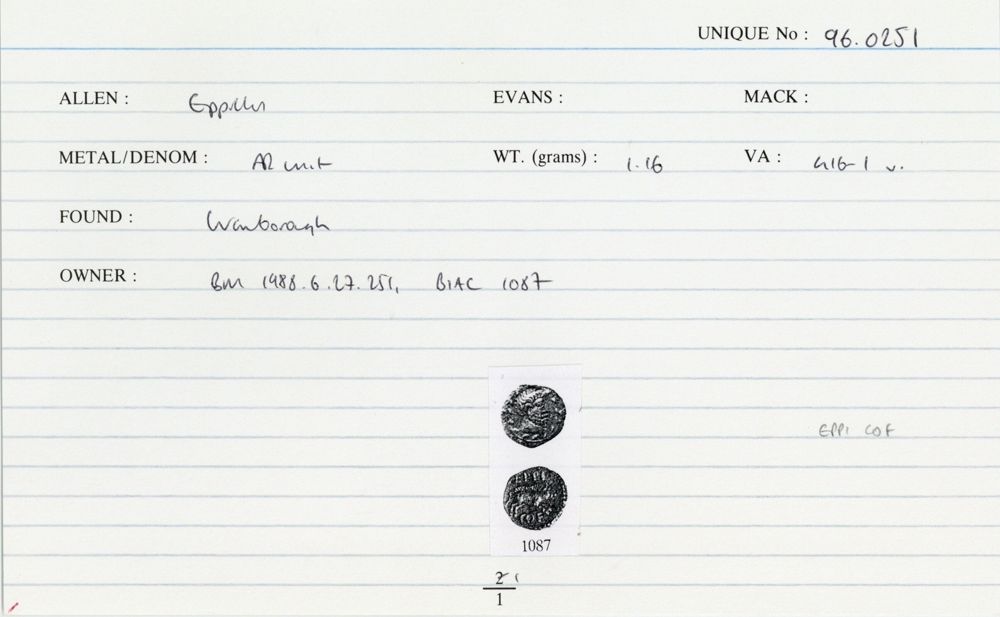 UNIQUE No : 96.0251
ALLEN : Eppillus EVANS : MACK :
METAL/DENOM : AR unit WT. (grams) : 1.16 VA : 416-1 v.
FOUND : Wanborough
OWNER : BM 1988.6.27.251, BMC 1087
EPPI COF
EPPI
COF
1087
2
1